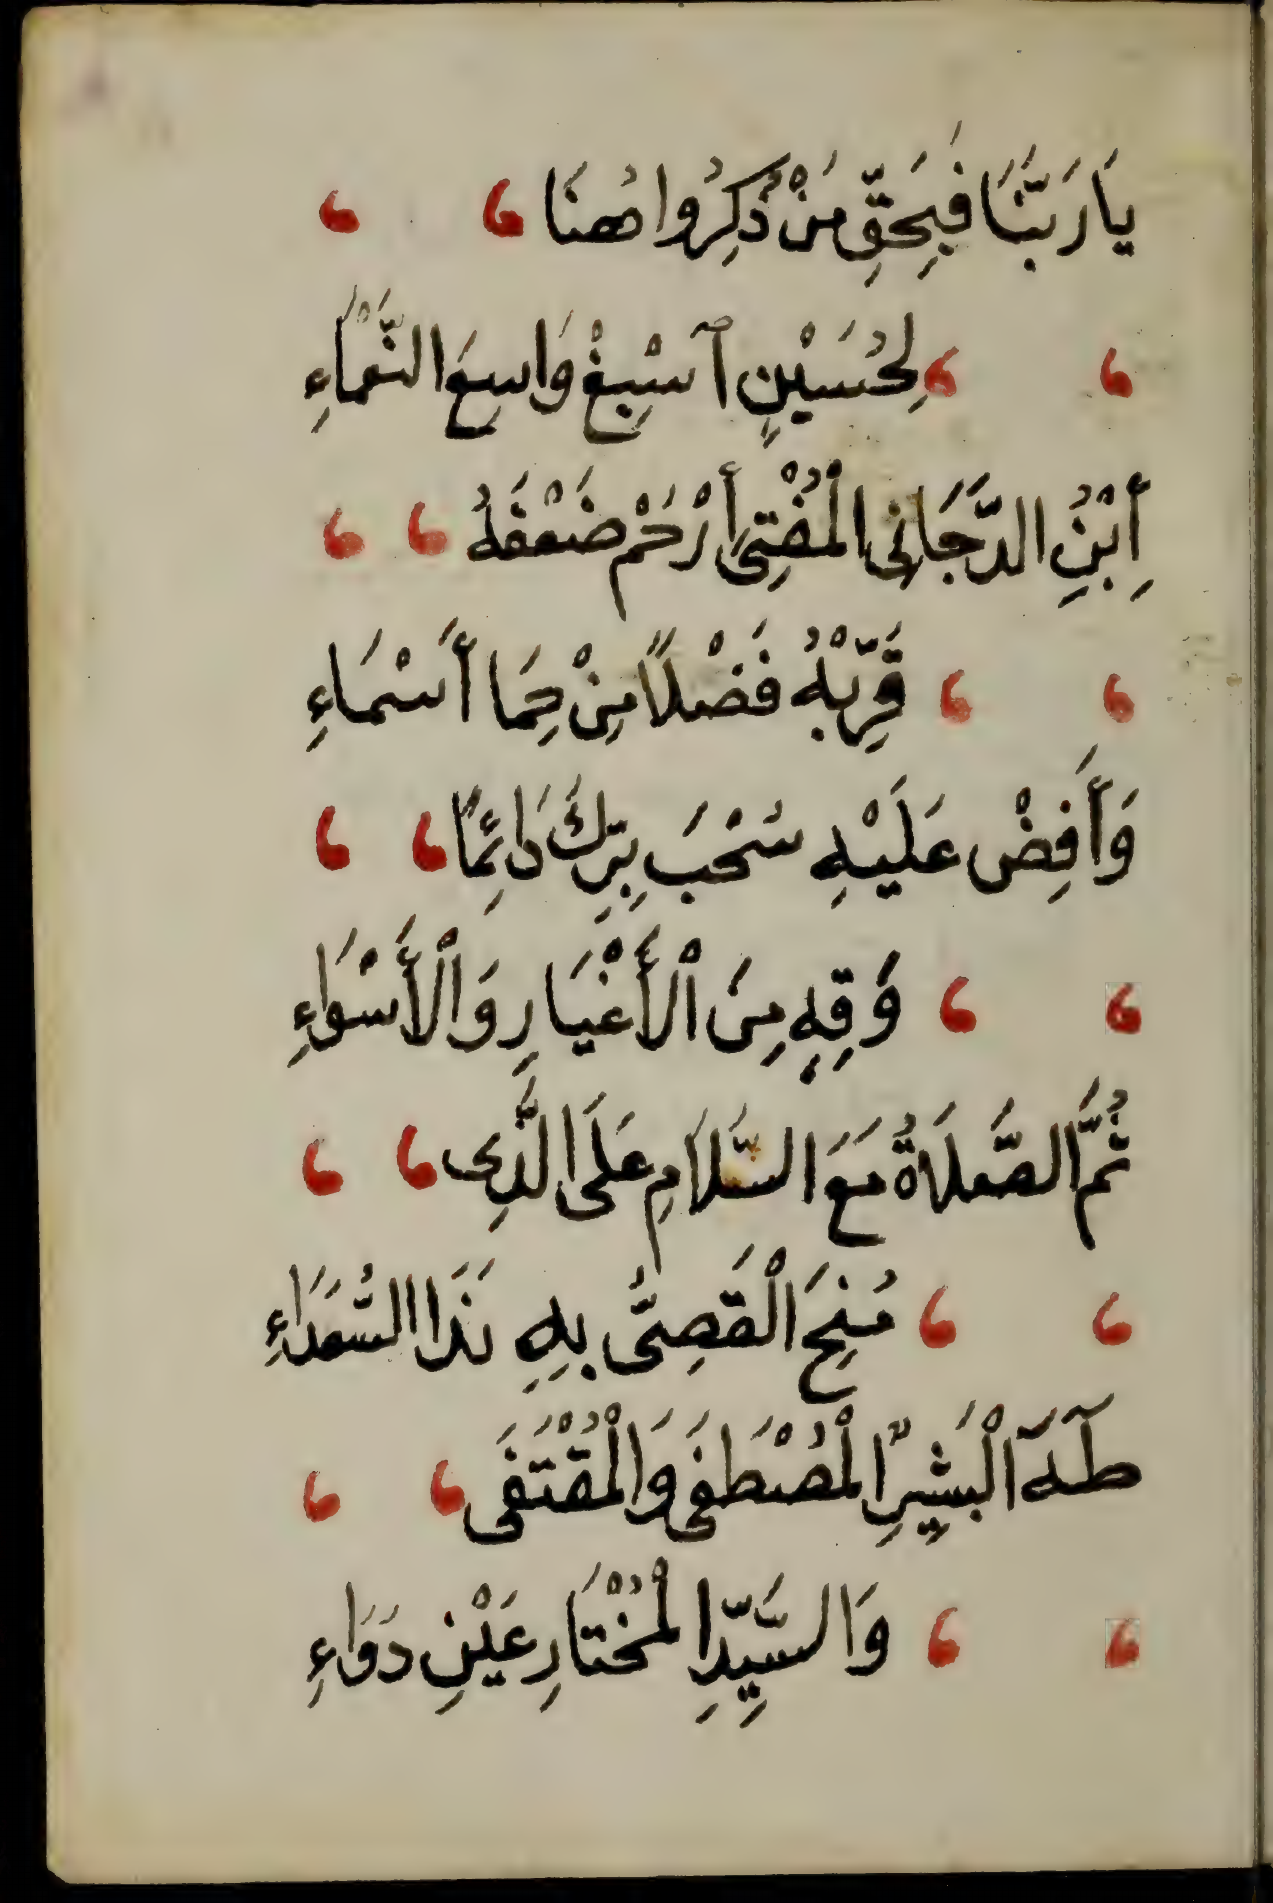 يَا رَبَّنَا فَبِحَقِّ مَنْ ذُكِرُوا هُنَا
لِحُسَيْنٍ آسْبِغْ وَاسِعَ النَّعْمَاءِ
إِبْنِ الدَّجَانِى الْمُفْتِى أرْحَمْ ضَعْفَهُ
قَرِّبْهُ فَضْلاً مِنْ حِمَا أَسْمَاءِ
وَأَفِضْ عَلَيْهِ سُحْبَ بِرِّكَ دَائِمًا
وَقِهِ مِنَ الْأَغْيَارِ وَالْأَسْوَاءِ
ثُمَّ الصَّلَاةُ مَعَ السَّلَامِ عَلَى الَّذِى
مُنِحَ الْقَصِىُّ بِهِ نَدَا السُّعَدَاءِ
طَهَ الْبَشِيْرِ الْمُصْطَفَى وَالْمُقْتَفَى
وَالسَّيِّدِ الْمُخْتَارِ عَيْنِ دَوَاءِ